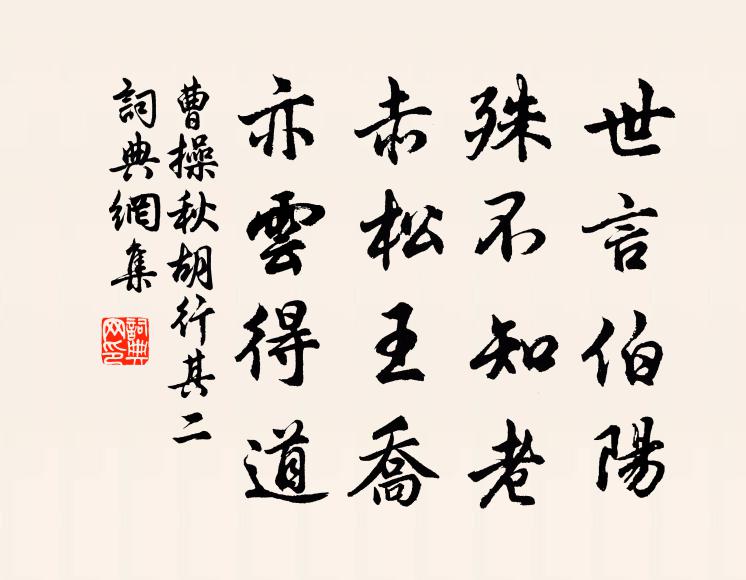 世言伯陽
殊不知老
赤松王喬
亦雲得道
曹操秋胡行其二
詞典網集
詞典网印